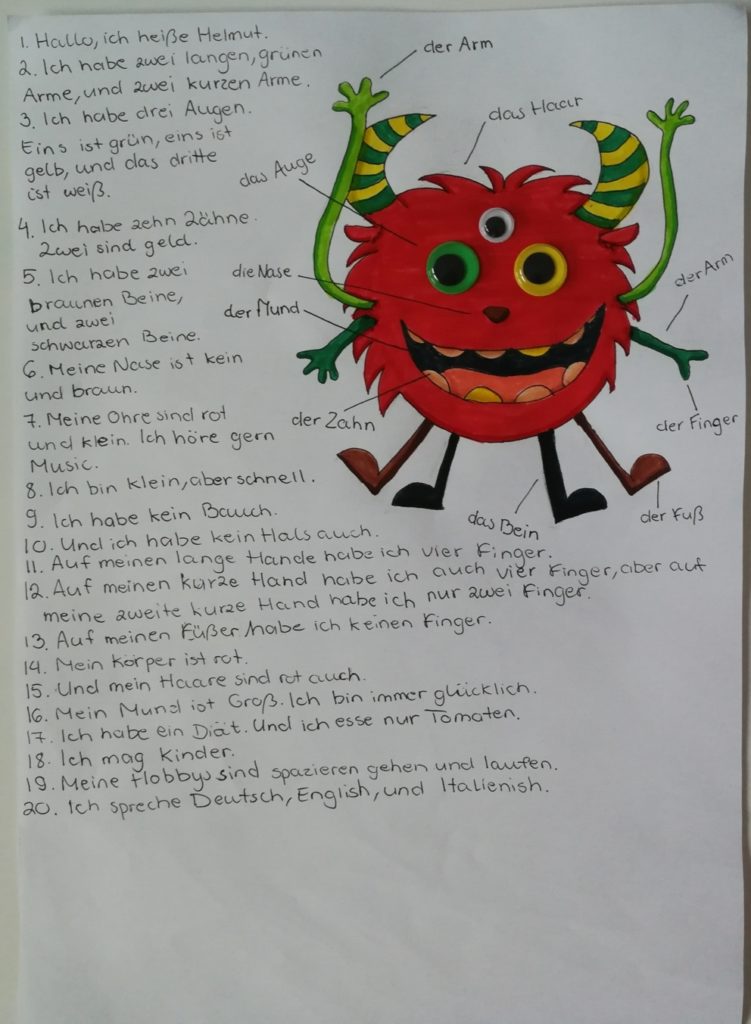 1. Hallo, ich heiße Helmut.
2. Ich habe zwei langen, grünen
Arme, und zwei kurzen Arme.
3. Ich habe drei Augen.
Eins ist grün, eins ist
gelb, und das dritte
ist weiß.
4. Ich habe zehn Zähne.
Zwei sind geld.
5. Ich habe zwei
braunen Beine,
und zwei
schwarzen Beine.
6. Meine Nase ist kein
und braun.
7. Meine Ohre sind rot
und klein. Ich höre gern
Music.
8. Ich bin klein, aber schnell.
9. Ich habe kein Bauch.
10. Und ich habe kein Hals auch.
11. Auf meinen lange Hande habe ich vier Finger.
12. Auf meinen kurze Hand habe ich auch vier Finger, aber auf
meine zweite kurze Hand habe ich nur zwei Finger.
13. Auf meinen Füßer habe ich keinen Finger.
14. Mein Körper ist rot.
15. Und mein Haare sind rot auch.
16. Mein Mund ist Groß. Ich bin immer glücklich.
17. Ich habe ein Diät. Und ich esse nur Tomaten.
18. Ich mag Kinder.
19. Meine Hobbys sind spazieren gehen und laufen.
20. Ich spreche Deutsch, English, und Italienish.
der Arm
das Haar
das Auge
die Nase
der Mund
der Zahn
der Arm
der Finger
das Bein
der Fuß